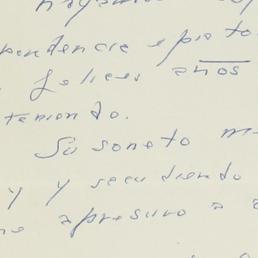 pendencia episto
felices años
teniendo.
Su soneto m
y y secundiendo
me apresuro a